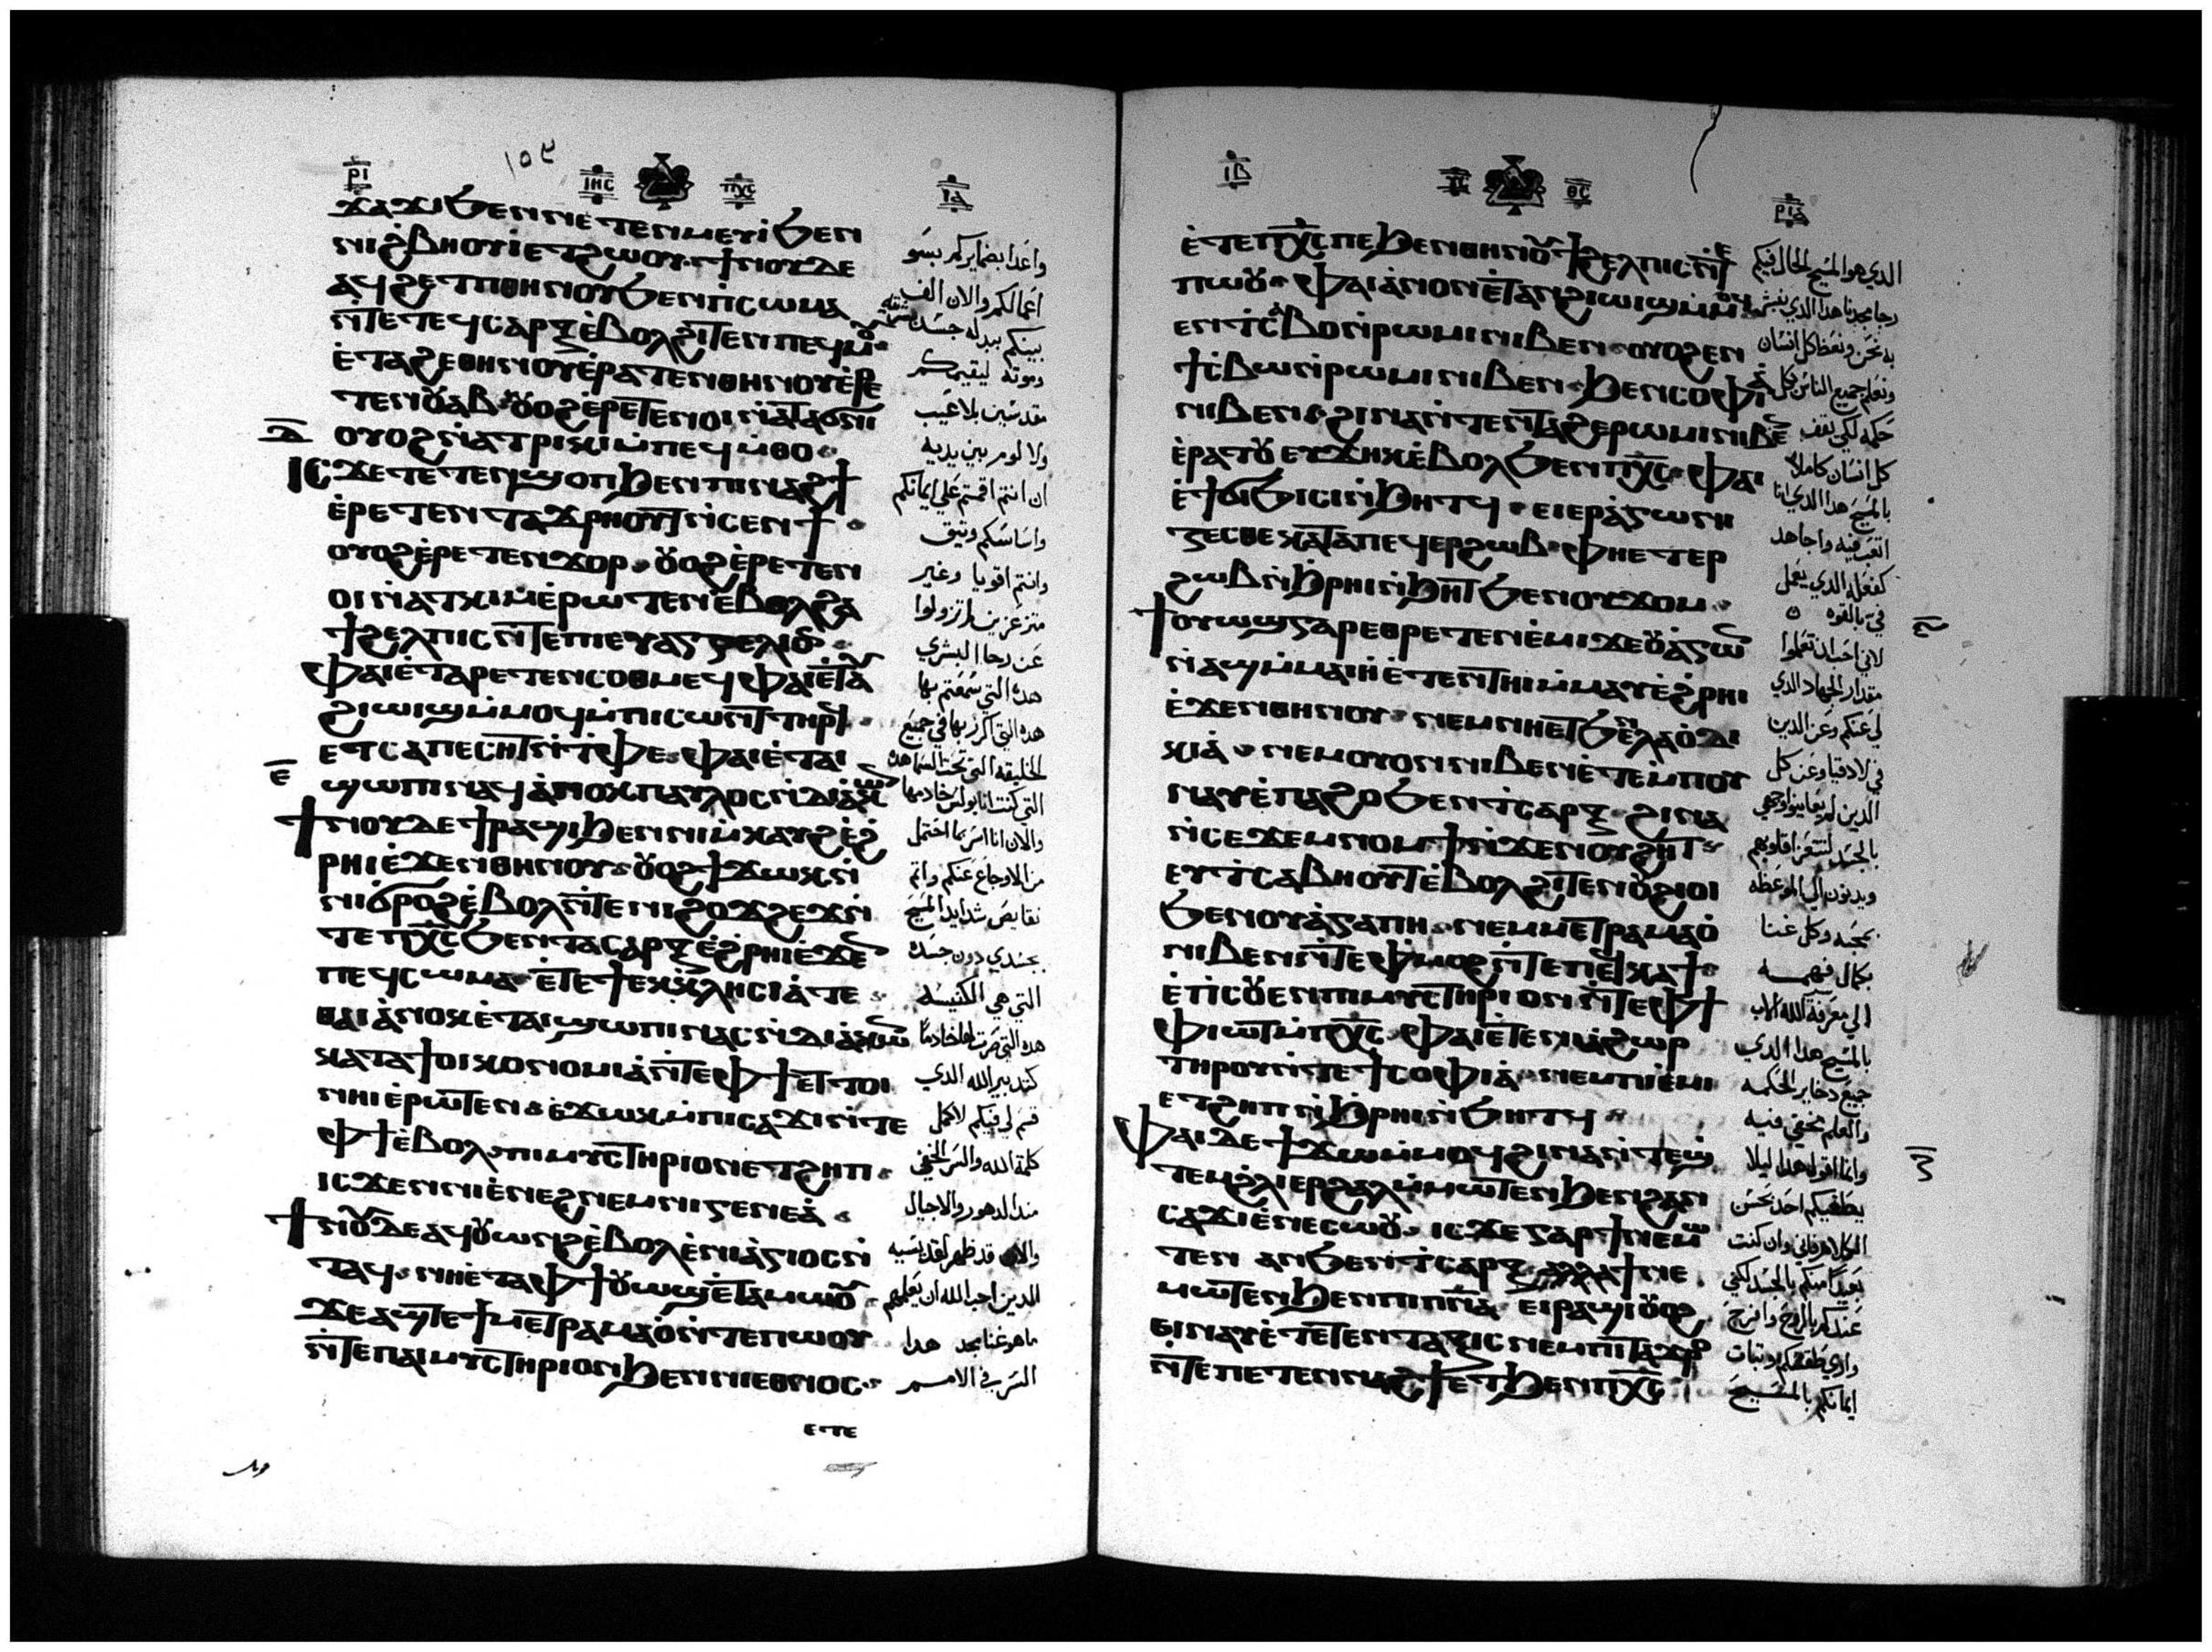 ⲣⲓ ⲓⲏⲥ ⲡⲭⲥ ⲓⲁ
ϫⲁϫⲓ ϧⲉⲛ ⲛⲉⲧⲉⲛⲙⲉⲩⲓ ϧⲉⲛ
ⲛⲓϩⲃⲏⲟⲩⲓ ⲉⲧϩⲱⲟⲩ ϯⲛⲟⲩ ⲇⲉ
ⲁϥϩⲉⲧⲡ ⲑⲏⲛⲟⲩ ϧⲉⲛ ⲡⲥⲱⲙⲁ
ⲛ̀ⲧⲉ ⲧⲉϥⲥⲁⲣⲝ ⲉ̀ⲃⲟⲗ ϩⲓⲧⲉⲛ ⲡⲉϥⲙⲟⲩ
ⲉ̀ⲧⲁϩⲉ ⲑⲏⲛⲟⲩ ⲉ̀ⲣⲁⲧⲉⲛ ⲑⲏⲛⲟⲩ ⲉ̀ⲣⲉ
ⲧⲉⲛⲟⲩⲁⲃ ⲟⲩⲟϩ ⲉ̀ⲣⲉⲧⲉⲛⲟⲓ ⲛ̀ⲁⲧⲁϭⲛⲓ
ⲟⲩⲟϩ ⲛ̀ⲁⲧⲣⲓⲕⲓ ⲙ̀ⲡⲉϥⲙ̀ⲑⲟ
ⲓⲥϫⲉ ⲧⲉⲧⲉⲛϣⲟⲡ ϧⲉⲛ ⲡⲓⲛⲁϩϯ
ⲉ̀ⲣⲉⲧⲉⲛⲧⲁϫⲣⲏⲟⲩⲧ ⲛ̀ⲥⲉⲛϯ
ⲟⲩⲟϩ ⲉ̀ⲣⲉⲧⲉⲛϫⲟⲣ ⲟⲩⲟϩ ⲉ̀ⲣⲉⲧⲉⲛ
ⲟⲓ ⲛ̀ⲁⲧⲕⲓⲙ ⲉ̀ⲣⲱⲧⲉⲛ ⲉ̀ⲃⲟⲗ ϩⲁ
ϯϩⲉⲗⲡⲓⲥ ⲛ̀ⲧⲉ ⲡⲓⲉⲩⲁⲅⲅⲉⲗⲓⲟⲛ
ⲫⲁⲓ ⲉ̀ⲧⲁⲣⲉⲧⲉⲛⲥⲟⲑⲙⲉϥ ⲫⲁⲓ ⲉ̀ⲧⲁⲩ
ϩⲓⲱⲓϣ ⲙ̀ⲙⲟϥ ⲙ̀ⲡⲓⲥⲱⲛⲧ ⲧⲏⲣϥ
ⲉⲧⲥⲁⲡⲉⲥⲏⲧ ⲛ̀ⲧⲫⲉ ⲫⲁⲓ ⲉ̀ⲧⲁⲓ
ϣⲱⲡⲓ ⲛⲁϥ ⲁ̀ⲛⲟⲕ ⲡⲁⲩⲗⲟⲥ ⲛ̀ⲇⲓⲁ̀ⲕⲱⲛ
ϯⲛⲟⲩ ⲇⲉ ϯⲣⲁϣⲓ ϧⲉⲛ ⲛⲓⲙ̀ⲕⲁⲩϩ ⲉ̀ϩ
ⲣⲏⲓ ⲉ̀ϫⲉⲛ ⲑⲏⲛⲟⲩ ⲟⲩⲟϩ ϯϫⲱⲕ ⲛ̀
ⲛⲓϭⲣⲟϩ ⲉ̀ⲃⲟⲗ ⲛ̀ⲧⲉ ⲛⲓϩⲟϫϩⲉϫ ⲛ̀
ⲧⲉ ⲡⲭⲥ ϧⲉⲛ ⲧⲁⲥⲁⲣⲝ ⲉ̀ϩⲣⲏⲓ ⲉ̀ϫⲉⲛ
ⲡⲉϥⲥⲱⲙⲁ ⲉ̀ⲧⲉ ϯⲉⲕⲕⲗⲏⲥⲓⲁ̀ ⲧⲉ
ⲑⲁⲓ ⲁ̀ⲛⲟⲕ ⲉ̀ⲧⲁⲓϣⲱⲡⲓ ⲛⲁⲥ ⲛ̀ⲇⲓⲁ̀ⲕⲱⲛ
ⲕⲁⲧⲁ ϯⲟⲓⲕⲟⲛⲟⲙⲓⲁ̀ ⲛ̀ⲧⲉ ⲫϯ ⲉ̀ⲧⲧⲟⲓ
ⲛⲏⲓ ⲉ̀ⲣⲱⲧⲉⲛ ⲉ̀ϫⲱⲕ ⲙ̀ⲡⲓⲥⲁϫⲓ ⲛ̀ⲧⲉ
ⲫϯ ⲉ̀ⲃⲟⲗ ⲡⲓⲙⲩⲥⲧⲏⲣⲓⲟⲛ ⲉⲧϩⲏⲡ
ⲓⲥϫⲉⲛ ⲛⲓⲉ̀ⲛⲉϩ ⲛⲉⲙ ⲛⲓⲅⲉⲛⲉⲁ̀
ϯⲛⲟⲩ ⲇⲉ ⲁϥⲟⲩⲱⲛϩ ⲉ̀ⲃⲟⲗ ⲉ̀ⲛⲓⲁ̀ⲅⲓⲟⲥ ⲛ̀
ⲧⲁϥ ⲛⲏ ⲉ̀ⲧⲁ ⲫϯ ⲟⲩⲱϣ ⲉ̀ⲧⲁⲙⲱⲟⲩ
ϫⲉ ⲁϣ ⲧⲉ ϯⲙⲉⲧⲣⲁⲙⲁⲟ̀ ⲛ̀ⲧⲉ ⲡⲱⲟⲩ
ⲛ̀ⲧⲉ ⲡⲁⲓⲙⲩⲥⲧⲏⲣⲓⲟⲛ ϧⲉⲛ ⲛⲓⲉⲑⲛⲟⲥ
ⲉⲧⲉ
واعدا بضمايركم بسو
اعمالكم والان الف
بينكم ببدله جسد بشريته
وموته ليقيمكم
مقدسين بلا عيب
ولا لوم بين يديه
ان انتم اقمتم علي ايمانكم
واساسكم وثيق
وانتم اقويا وغير
متزعزعين لا تزولوا
عن رجا البشري
هذه التي سمعتم بها
هذه التي اكرز بها في جميع
الخليقه التي تحت السما هذه
التي كنت انا بولس خادمها
والان انا اسر بما احتمل
من الاوجاع عنكم واتم
نقايص شدايد المسيح
بجسدي دون جسده
التي هي الكنيسه
هذه التي صرت لها خادما
كتدبير الله الذي
قسم لي فيكم لاكمل
كلمة الله والسر الخفي
منذ الدهور والاجيال
والان قد ظهر لقديسيه
الذين احب الله ان يعلمهم
ما هو غنا مجد هذا
السر في الامم
ⲓⲃ ⲓⲥ ⲑⲥ ⲣⲓⲁ
ⲉ̀ⲧⲉ ⲡⲭⲥ ⲡⲉ ϧⲉⲛ ⲑⲏⲛⲟⲩ ϯϩⲉⲗⲡⲓⲥ ⲛ̀ⲧⲉ
ⲡⲱⲟⲩ ⲫⲁⲓ ⲁ̀ⲛⲟⲛ ⲉ̀ⲧⲁⲛϩⲓⲱⲓϣ ⲙ̀ⲙⲟϥ
ⲉⲛϯⲥⲃⲱ ⲛ̀ⲣⲱⲙⲓ ⲛⲓⲃⲉⲛ ⲟⲩⲟϩ ⲉⲛ
ϯⲥⲃⲱ ⲛ̀ⲣⲱⲙⲓ ⲛⲓⲃⲉⲛ ϧⲉⲛ ⲥⲟⲫⲓⲁ̀
ⲛⲓⲃⲉⲛ ϩⲓⲛⲁ ⲛ̀ⲧⲉⲛⲧⲁϩⲉ ⲣⲱⲙⲓ ⲛⲓⲃⲉⲛ
ⲉ̀ⲣⲁⲧⲟⲩ ⲉⲩϫⲏⲕ ⲉ̀ⲃⲟⲗ ϧⲉⲛ ⲡⲭⲥ ⲫⲁⲓ
ⲉ̀ϯϭⲓϧⲓⲥⲓ ⲛ̀ϧⲏⲧϥ ⲉⲓⲉⲣⲁ̀ⲅⲱⲛⲏ
ⲍⲉⲥⲑⲉ ⲕⲁⲧⲁ ⲡⲉϥⲉⲣϩⲱⲃ ⲫⲏ ⲉⲧⲉⲣ
ϩⲱⲃ ⲛ̀ϧⲣⲏⲓ ⲛ̀ϧⲏⲧ ϧⲉⲛ ⲟⲩϫⲟⲙ
ϯⲟⲩⲱϣ ⲅⲁⲣ ⲉⲑⲣⲉⲧⲉⲛⲉ̀ⲙⲓ ϫⲉ ⲟⲩⲁ̀ⲅⲱⲛ
ⲛ̀ⲁϣ ⲙ̀ⲙⲁⲓⲏ ⲉ̀ⲧⲉⲛⲧⲏⲓ ⲙ̀ⲙⲁⲩ ⲉ̀ϩⲣⲏⲓ
ⲉ̀ϫⲉⲛ ⲑⲏⲛⲟⲩ ⲛⲉⲙ ⲛⲏ ⲉⲧϧⲉⲛ ⲗⲁⲟ̀ⲇⲓ
ⲕⲓⲁ̀ ⲛⲉⲙ ⲟⲩⲟⲛ ⲛⲓⲃⲉⲛ ⲉ̀ⲧⲉ ⲙ̀ⲡⲟⲩ
ⲛⲁⲩ ⲉ̀ⲡⲁϩⲟ ϧⲉⲛ ⲧⲥⲁⲣⲝ ϩⲓⲛⲁ
ⲛ̀ⲥⲉϫⲉⲙⲛⲟⲙϯ ⲛ̀ϫⲉ ⲛⲟⲩϩⲏⲧ
ⲉⲩⲧⲥⲁⲃⲏⲟⲩⲧ ⲉ̀ⲃⲟⲗ ϩⲓⲧⲉⲛ ⲟⲩϩⲓⲟⲓ
ϧⲉⲛ ⲟⲩⲁ̀ⲅⲁⲡⲏ ⲛⲉⲙ ⲙⲉⲧⲣⲁⲙⲁⲟ̀
ⲛⲓⲃⲉⲛ ⲛ̀ⲧⲉ ⲫⲙⲟϩ ⲛ̀ⲧⲉ ⲡⲓⲉⲓⲕⲁϯ
ⲉ̀ⲡⲓⲥⲟⲩⲉⲛ ⲡⲓⲙⲩⲥⲧⲏⲣⲓⲟⲛ ⲛ̀ⲧⲉ ⲫϯ
ⲫⲓⲱⲧ ⲙ̀ⲡⲭⲥ ⲫⲁⲓ ⲉ̀ⲧⲉ ⲛⲓⲁϩⲱⲣ
ⲧⲏⲣⲟⲩ ⲛ̀ⲧⲉ ϯⲥⲟⲫⲓⲁ̀ ⲛⲉⲙ ⲡⲓⲉ̀ⲙⲓ
ⲉⲧϩⲏⲡ ⲛ̀ϧⲣⲏⲓ ⲛ̀ϧⲏⲧϥ
ⲫⲁⲓ ⲇⲉ ϯϫⲱ ⲙ̀ⲙⲟϥ ϩⲓⲛⲁ ⲛ̀ⲧⲉϣ
ⲧⲉⲙϩⲗⲓ ⲉⲣϩⲁⲗ ⲙ̀ⲙⲱⲧⲉⲛ ϧⲉⲛ ϩⲁⲛ
ⲥⲁϫⲓ ⲉ̀ⲛⲉⲥⲱⲟⲩ ⲓⲥϫⲉ ⲅⲁⲣ ϯⲛⲉⲙⲱ
ⲧⲉⲛ ⲁⲛ ϧⲉⲛ ⲧⲥⲁⲣⲝ ⲁⲗⲗⲁ ϯⲛⲉ
ⲙⲱⲧⲉⲛ ϧⲉⲛ ⲡⲓⲡⲛⲁ ⲉⲓⲣⲁϣⲓ ⲟⲩⲟϩ
ⲉⲓⲛⲁⲩ ⲉ̀ⲧⲉⲧⲉⲛⲧⲁⲝⲓⲥ ⲛⲉⲙ ⲡⲓⲧⲁϫⲣⲟ
ⲛ̀ⲧⲉ ⲡⲉⲧⲉⲛⲛⲁϩϯ ⲉⲧϧⲉⲛ ⲡⲭⲥ
الذي هو المسيح الحال فيكم
رجا مجدنا هذا الذي نبشر
به نحن ونعظ كل انسان
ونعلم جميع الناس بكل
حكمه لكي نقف
كل انسان كاملا
بالمسيح هذا الذي انا
اتعب فيه واجاهد
كفعله الذي يفعل
في بالقوه
لاني احب ان تعلموا
مقدار الجهاد الذي
لي عنكم وعن الذين
في لادقيا وعن كل
الذين لم يعاينوا وجهي
بالجسد لتتعزا قلوبهم
ويدنون الي الموعظه
بمحبه وكل غنا
بكمال فهمه
الي معرفة الله الاب
بالمسيح هذا الذي
جميع دخاير الحكمه
والعلم مخفي فيه
وانما اقول هذا ليلا
يطغيكم احد بحسن
الكلام فاني وان كنت
بعيدا منكم بالجسد لكني
عندكم بالروح وافرح
واري طقسكم وثبات
ايمانكم بالمسيح